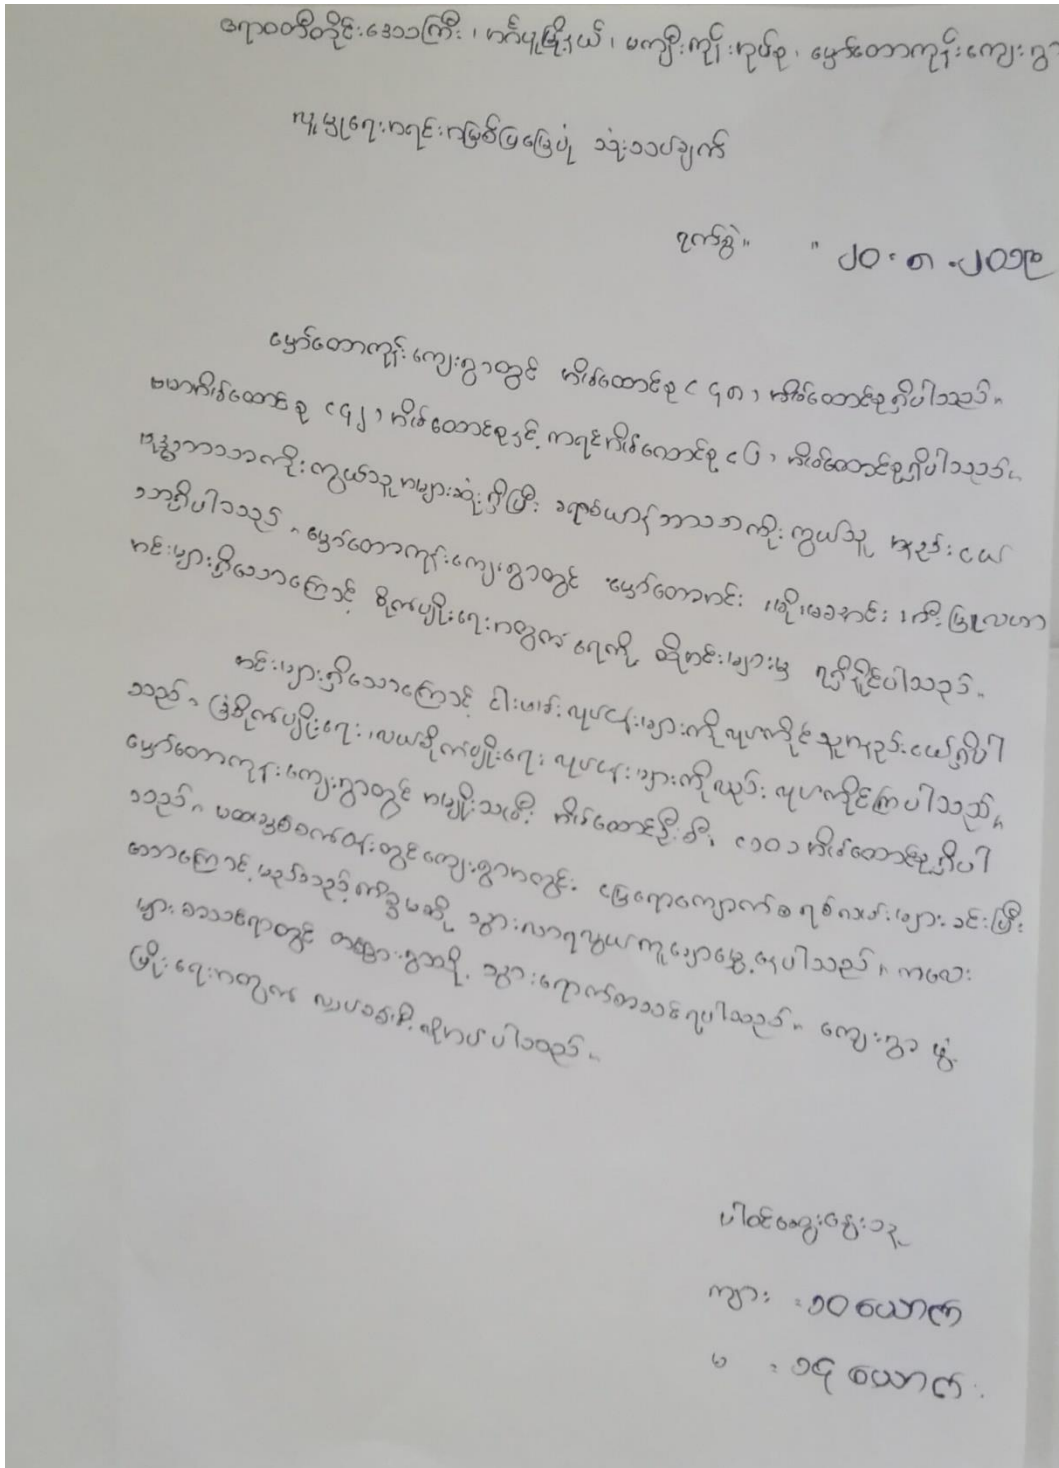 ဧရာဝတီတိုင်းဒေသကြီး ၊ အင်္ဂပူမြို့နယ် ၊ မကျီးကုန်းအုပ်စု ၊ မှော်တောကုန်းကျေးရွာ
လူမှုရေးအရင်းအမြစ်ပြမြေပုံ သုံးသပ်ချက်
ရက်စွဲ။ ။ ၂၀.၈.၂၀၁၉
မှော်တောကုန်းကျေးရွာတွင် အိမ်ထောင်စု ၄၈ ၊ အိမ်ထောင်စုရှိပါသည်။
ဗမာအိမ်ထောင်စု ၊ အိမ်ထောင်စုနှင့် ကရင်အိမ်ထောင်စု ၊ အိမ်ထောင်စုရှိပါသည်။
ဗုဒ္ဓဘာသာကိုးကွယ်သူအများဆုံးရှိပြီး ခရစ်ယာန်ဘာသာကိုးကွယ်သူ အနည်းငယ်
သာရှိပါသည်။ မှော်တောကုန်းကျေးရွာတွင် မှော်တောအင်း ၊
အင်းများရှိသောကြောင့် စိုက်ပျိုးရေးအတွက် ရေကို ထိုအင်းများမှ ရရှိနိုင်ပါသည်။
အင်းများရှိသောကြောင့် ငါးဖမ်းလုပ်ငန်းများကိုလုပ်ကိုင်သူအနည်းငယ်ရှိပါ
သည်။ ခြံစိုက်ပျိုးရေး ၊ လယ်စိုက်ပျိုးရေး လုပ်ငန်းများကိုလည်း လုပ်ကိုင်ကြပါသည်။
မှော်တောကုန်းကျေးရွာတွင် အမျိုးသမီး အိမ်ထောင်ဦးစီး အိမ်ထောင်စုရှိပါ
သည်။ ကျေးရွာအတွင်း မြေရောကျောက်စရစ်လမ်းများခင်းပြီး
သောကြောင့် မည်သည့်ရာသီမဆို သွားလာရလွယ်ကူချောမွေ့နေပါသည်။ ကလေး
များ တခြားရွာသို့ သွားရောက်တက်ရပါသည်။ ကျေးရွာ ဖွံ့
ဖြိုးရေးအတွက် လျှပ်စစ်မီးလိုအပ်ပါသည်။
ပါဝင်ဆွေးနွေးသူ
ကျား - ၁၀ ယောက်
မ - ၁၄ ယောက်